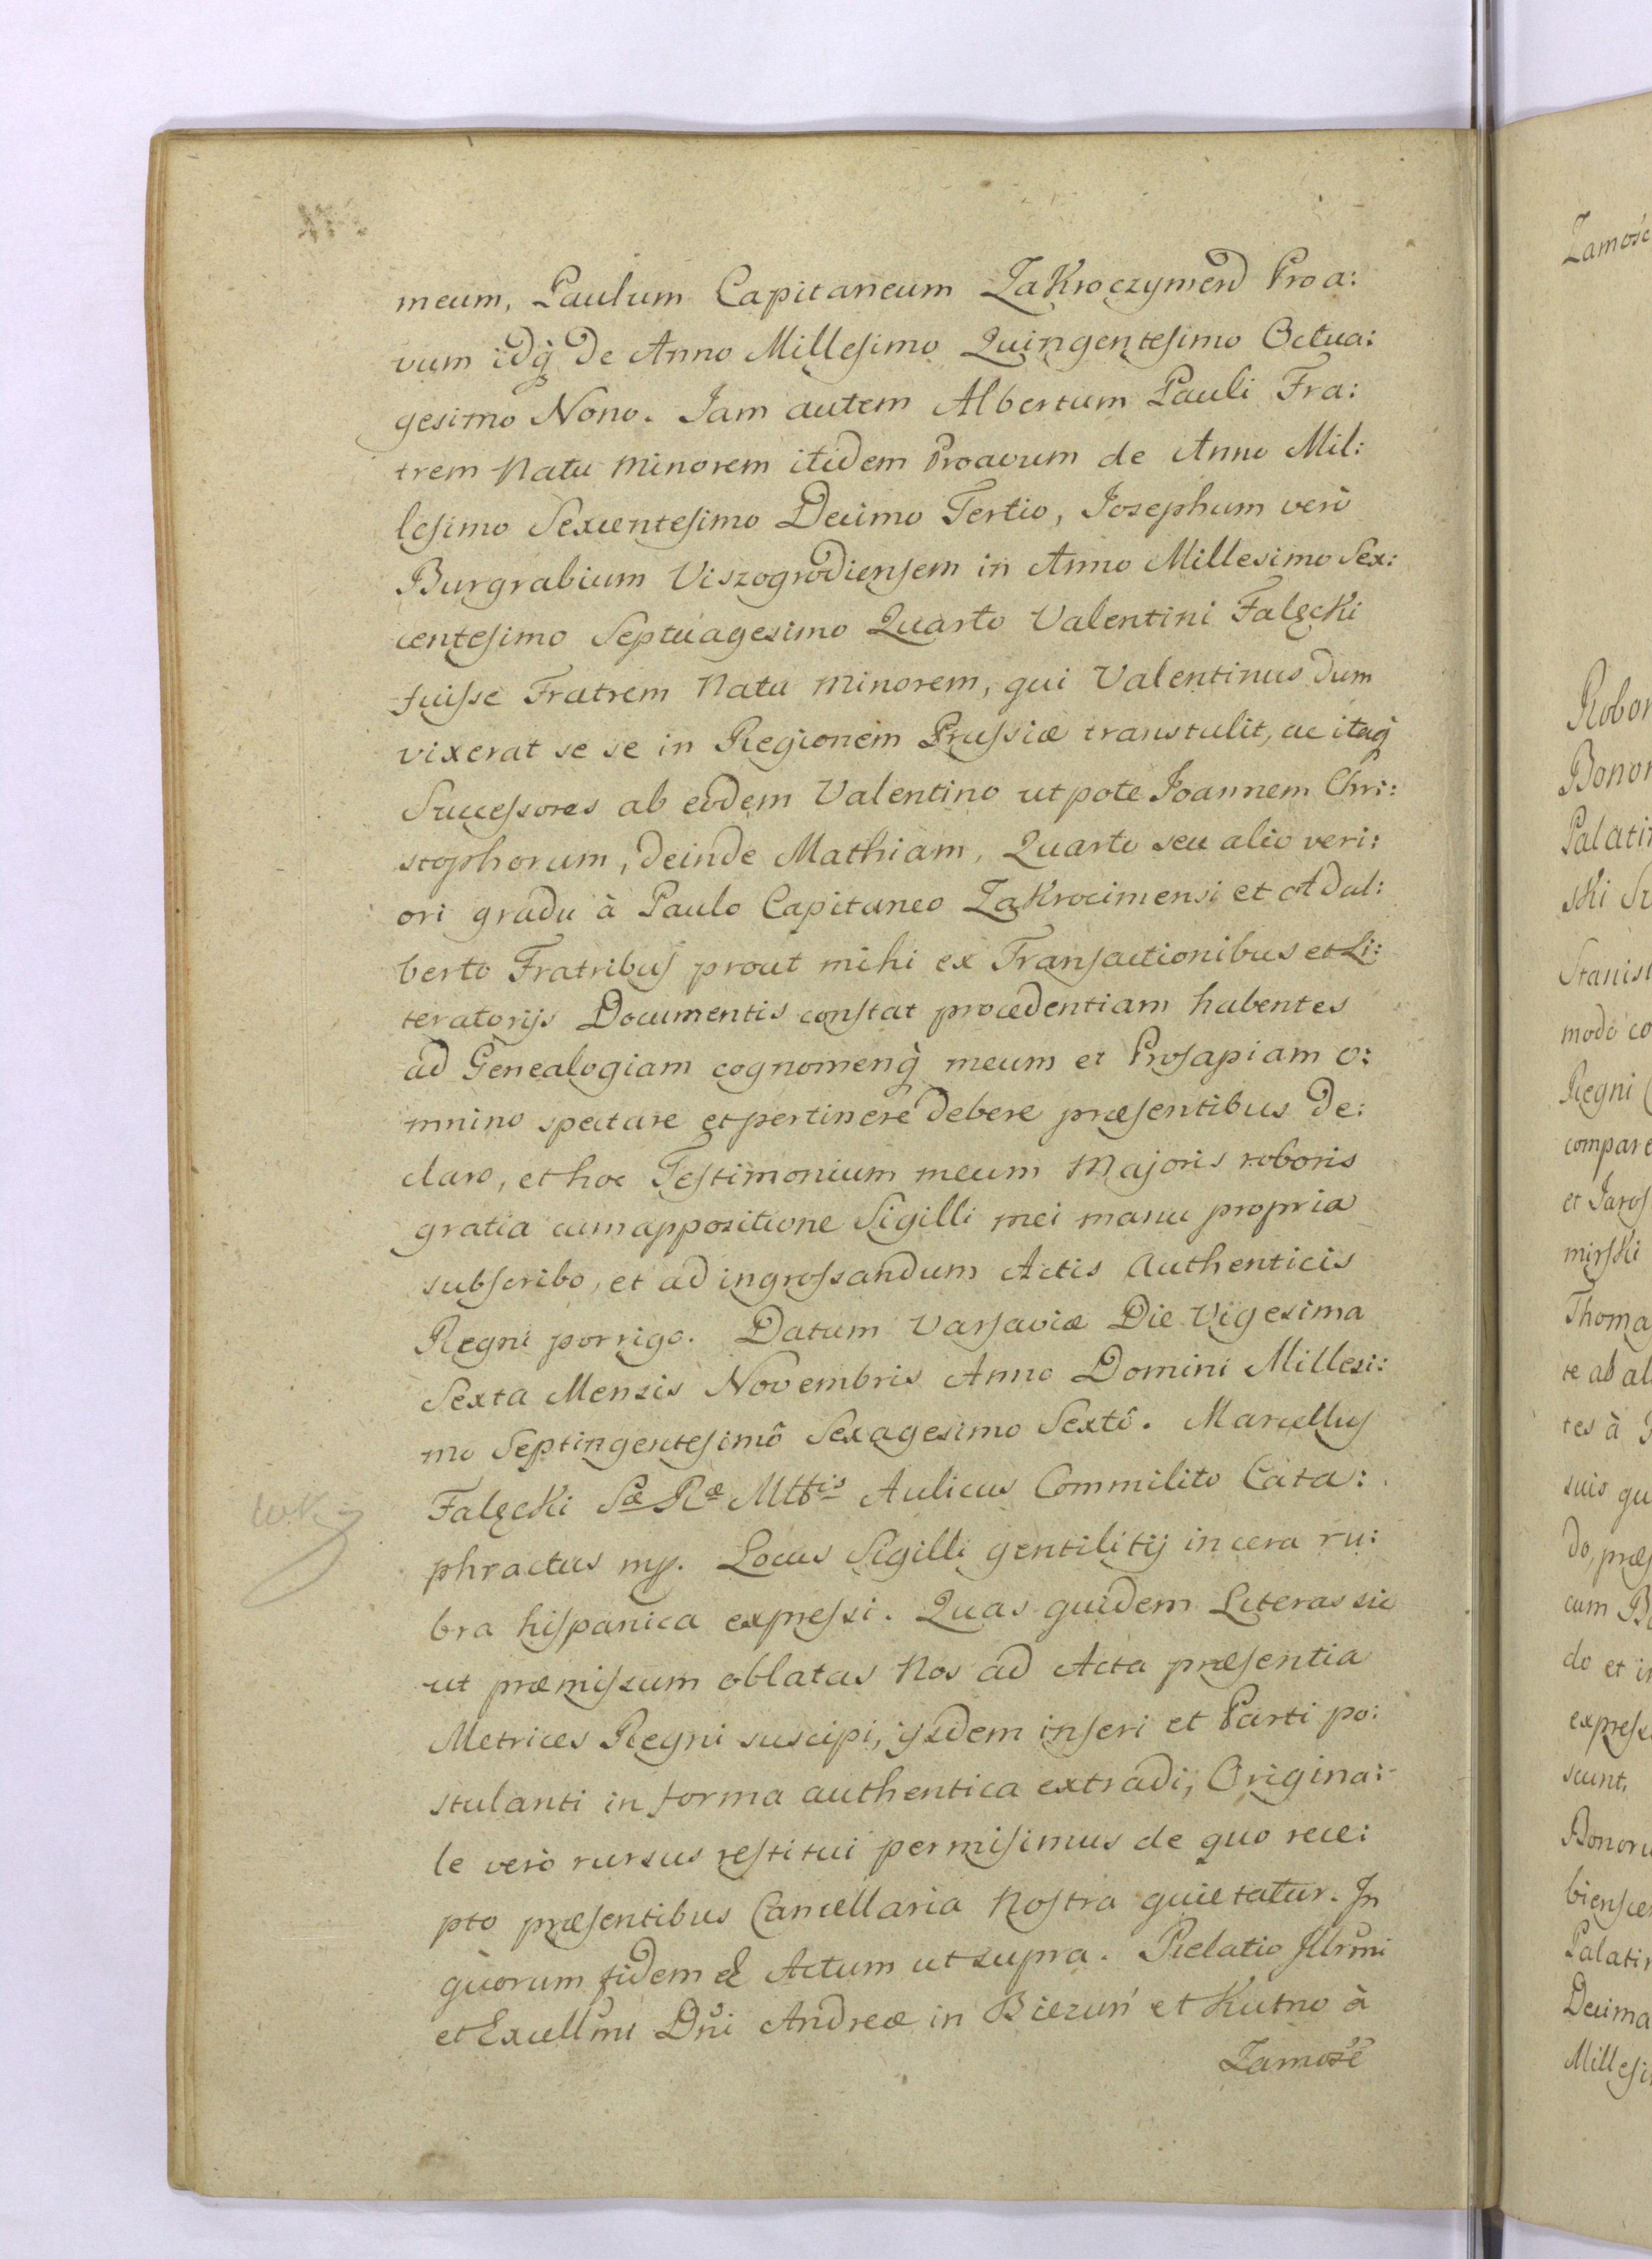 meum, Paulum Capitaneum Zakroczymens Proa:
vum idq̀ de Anno Millesimo Quingentesimo Octua:
gesimo Nono. Iam autem Albertum Pauli Fra:
trem Natu Minorem itidem Proavum de Anno Mil:
lesimo Sexcentesimo Decimo Tertio, Josephum verò
Burgrabium Viszogrodiensem in Anno Millesimo Sex:
centesimo Septuagesimo Quarto Valentini Falęcki
fuisse Fratrem Natu Minorem, qui Valentinus dum
vixerat se se in Regionem Prussiæ transtulit, ac itaq̀
Successores ab eodem Valentino utpote Joannem Chri:
stophorum, deinde Mathiam, Quarto seu alio veri:
ori gradu à Paulo Capitaneo Zakrocimensi et Adal:
berto Fratribus prout mihi ex Transactionibus et Li:
teratorijs Documentis constat procedentiam habentes
ad Genealogiam cognomenq̀ meum et Prosapiam o:
mnino spectare et pertinere debere præsentibus de:
claro, et hoc Testimonium meum Majoris roboris
gratia cum appositione Sigilli mei manu propria
subscribo, et ad ingrossandum Actis Authenticis
Regni porrigo. Datum Varsaviæ Die Vigesima
Sexta Mensis Novembris Anno Domini Millesi:
mo Septingentesimô Sexagesimo Sextô. Marcellus
Falęcki Sæ Ræ Mttis Aulicus Commilito Cata:
phractus mp. Locus Sigilli gentilitij in cera ru:
bra hispanica expressi. Quas quidem Literas sic
ut præmissum oblatas Nos ad Acta præsentia
Metrices Regni suscipi, ijsdem inseri et Parti po:
stulanti in forma authentica extradi, Origina:
le verò rursus restitui permisimus de quo rece:
pto præsentibus Cancellaria Nostra quietatur. In
quorum fidem & Actum ut supra. Relatio Illrmi
et Excellmi Dni Andreæ in Biezuń et Kutno à
Zamość
Zamość
Robor
Bonor
Palatin
ski
Stanisl
modo co
Regni
compare
et Jaros
mirski
Thoma
te ab al
tes à
suis qu
do, præs
cum
do et in
express
sunt,
Bonoru
biensce
Palatin
Decima
Millesi